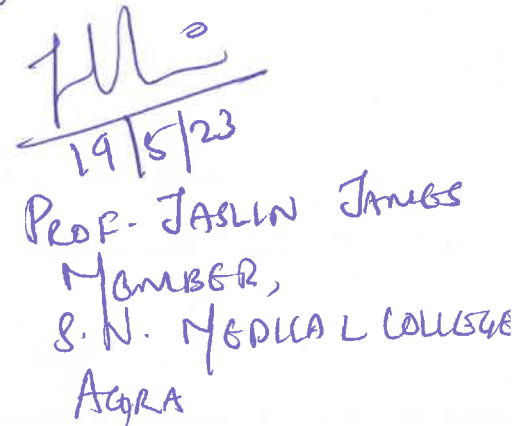 19/5/23
PROF. JASLIN JAMES
MEMBER,
S.N. MEDICAL COLLEGE
AGRA